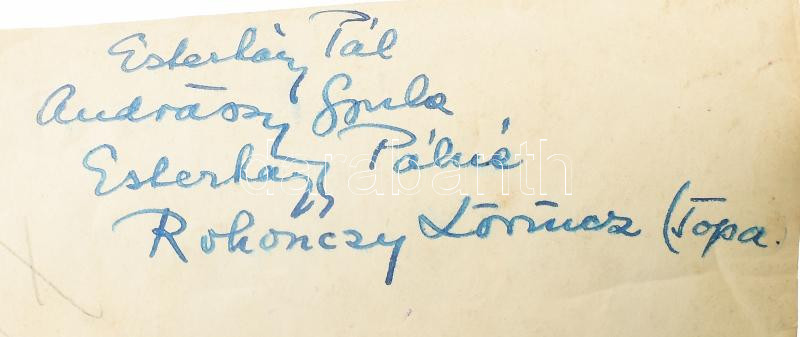 Esterházy Pál
Andrássy Gyula
Esterházy Pálné
Rohonczy Lőrincz (Topa.
darabanth